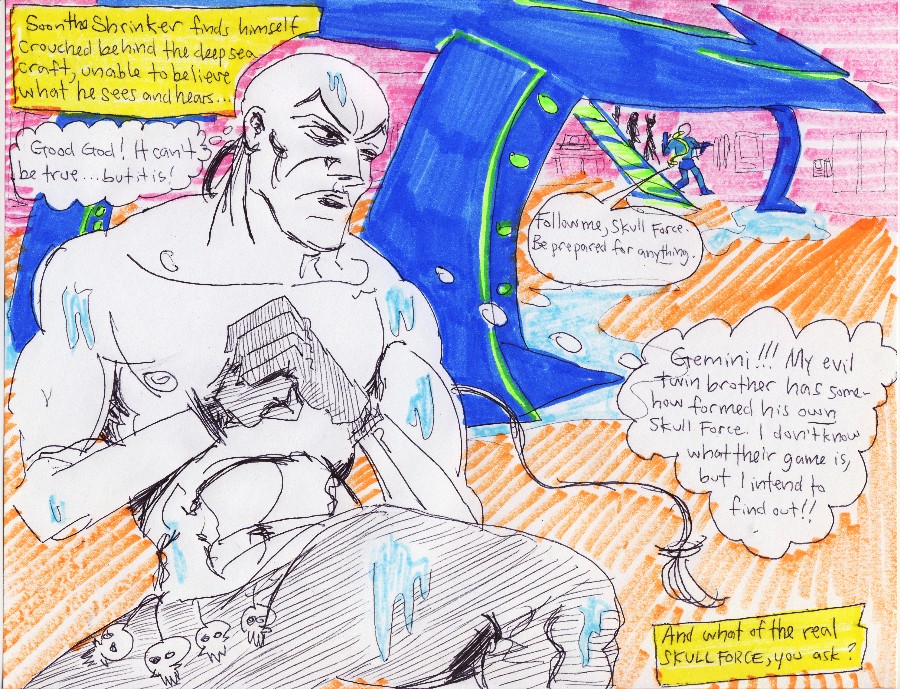 Soon the Shrinker finds himself
crouched behind the deep sea
craft, unable to believe
what he sees and hears...
Good God! It can't
be true...but it is!
Follow me, Skull Force.
Be prepared for anything.
Gemini!!! My evil
twin brother has some-
how formed his own
Skull Force. I don't know
what their game is,
but I intend to
find out!!
And what of the real
SKULL FORCE, you ask?